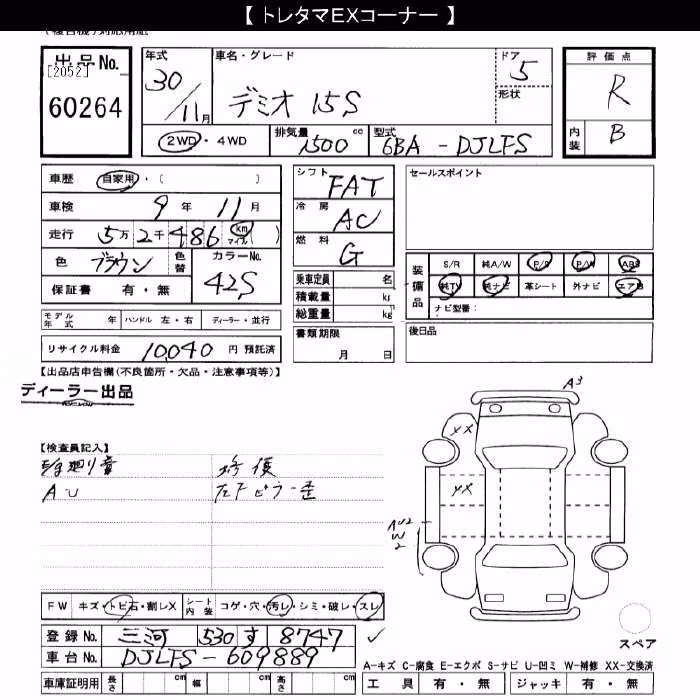 【 トレタマEXコーナー 】
出品No.
[2052]
60264
年式
30/11月
車名・グレード
デミオ 15S
ドア
5
形状
2WD・4WD
排気量
1500 cc
型式
6BA - DJLFS
評価点
R
内装
B
車歴 自家用・( )
車検 9年 11月
走行 5万2千486 km マイル ( )
色 ブラウン
色替
カラーNo.
42S
保証書 有・無
モデル年式 年 ハンドル 左・右 ディーラー・並行
リサイクル料金 10,040 円 預託済
シフト
FAT
冷房
AC
燃料
G
乗車定員 名
積載量 kg
総重量 kg
書類期限
月 日
セールスポイント
装備品
S/R 純A/W P/S P/W ABS
純TV 純ナビ 革シート 外ナビ エアB
ナビ型番:
後日品
【出品店申告欄(不良箇所・欠品・注意事項等)】
ディーラー出品
【検査員記入】
廻り音
AU
修復
左下ピラー歪
A3
XX
XX
AU2
W2
FW キズ・トビ石・割レX シート内装 コゲ・穴・汚レ・シミ・破レ・スレ
登録No. 三河 530 す 8747
車台No. DJLFS-609889
車庫証明用 長さ cm 幅 cm 高さ cm
スペア
A-キズ C-腐食 E-エクボ S-サビ U-凹ミ W-補修 XX-交換済
工具 有・無 ジャッキ 有・無